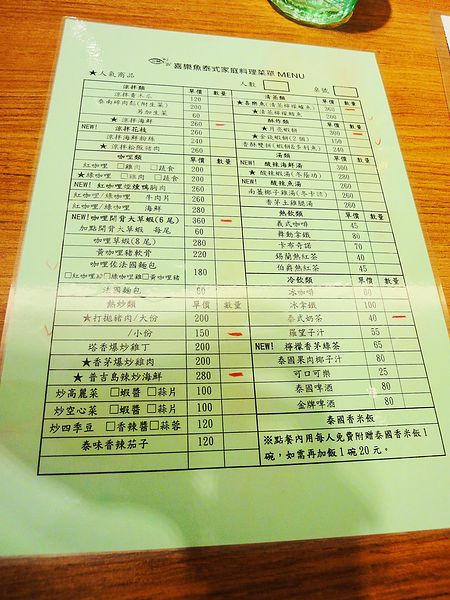 喜樂魚泰式家庭料理菜單 MENU
★人氣商品
人數
桌號
涼拌類 單價 數量
涼拌青木瓜 120
泰南碎肉鬆(附生菜) 200
另加生菜 60
★涼拌海鮮 260
NEW! 涼拌花枝 260
涼拌海鮮粉絲 240
★涼拌松阪豬肉 260
咖哩類 單價 數量
紅咖哩 □雞肉 □蔬食 200
★綠咖哩 □雞肉 □蔬食 200
NEW! 紅咖哩煙燻鴨胸肉 260
紅咖哩/綠咖哩 牛肉片 260
紅咖哩/綠咖哩 海鮮 280
NEW!咖哩開背大草蝦(6尾) 360
加點開背大草蝦 每尾 60
咖哩草蝦(8尾) 280
黃咖哩豬軟骨 220
咖哩佐法國麵包
□紅咖哩 □綠咖哩雞 □黃咖哩豬 180
法國麵包 60
熱炒類 單價 數量
★打拋豬肉/大份 200
/小份 150
塔香爆炒雞丁 200
★香茅爆炒雞肉 200
★普吉島辣炒海鮮 280
炒高麗菜 □蝦醬 □蒜片 100
炒空心菜 □蝦醬 □蒜片 100
炒四季豆 □香辣醬 □蒜蓉 120
泰味香辣茄子 120
清蒸類 單價 數量
★喜樂魚(清蒸檸檬鱸魚) 360
★清蒸檸檬鯛魚 240
酥炸類 單價 數量
★月亮蝦餅 300
★金錢蝦餅(2個) 150
香酥雙餅
湯類 單價 數量
NEW! 酸辣海鮮湯
★酸辣蝦湯(冬蔭功) 280
NEW! 酸辣魚湯 260
南薑椰子雞湯(冬卡該) 260
香茅土雞腿湯 260
熱飲類 單價 數量
義式咖啡 45
韓勳拿鐵 80
卡布奇諾 70
錫蘭熱紅茶 45
伯爵熱紅茶 45
冷飲類 單價 數量
冰咖啡 80
冰拿鐵 100
泰式奶茶 40
羅望子汁 55
NEW! 檸檬香茅綠茶 65
泰國果肉椰子汁 80
可口可樂 25
泰國啤酒 80
金牌啤酒 80
泰國香米飯
※點餐內用每人免費附贈泰國香米飯1
碗，如需再加飯1碗20元。